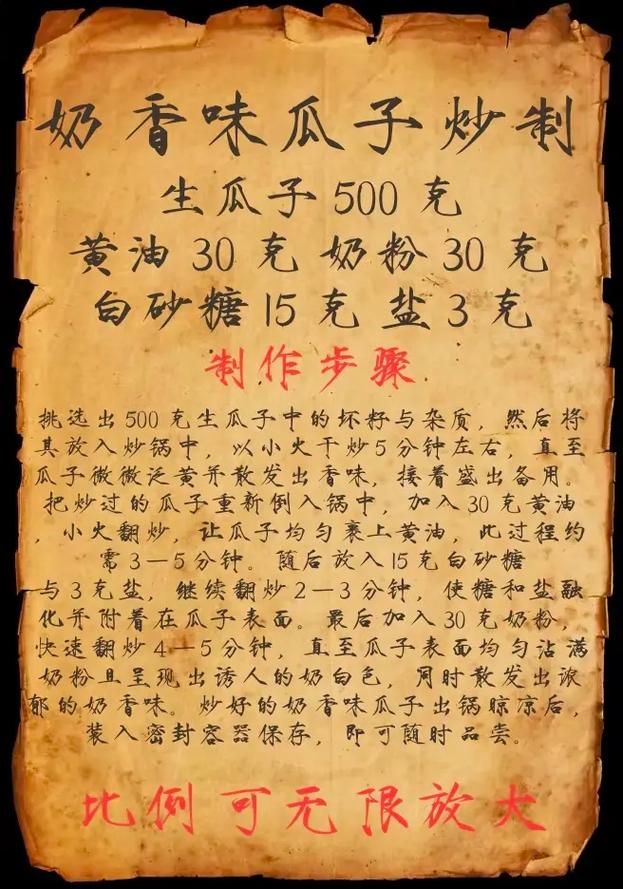 奶香味瓜子炒制
生瓜子500克
黄油30克 奶粉30克
白砂糖15克 盐3克
制作步骤
挑选出500克生瓜子中的坏籽与杂质，然后将
其放入炒锅中，以小火干炒5分钟左右，直至
瓜子微微泛黄并散发出香味，接着盛出备用。
把炒过的瓜子重新倒入锅中，加入30克黄油
，小火翻炒，让瓜子均匀裹上黄油，此过程约
需3—5分钟。随后放入15克白砂糖
与3克盐，继续翻炒2—3分钟，使糖和盐融
化并附着在瓜子表面。最后加入30克奶粉，
快速翻炒4—5分钟，直至瓜子表面均匀沾满
奶粉且呈现出诱人的奶白色，同时散发出浓
郁的奶香味。炒好的奶香味瓜子出锅晾凉后，
装入密封容器保存，即可随时品尝。
比例可无限放大